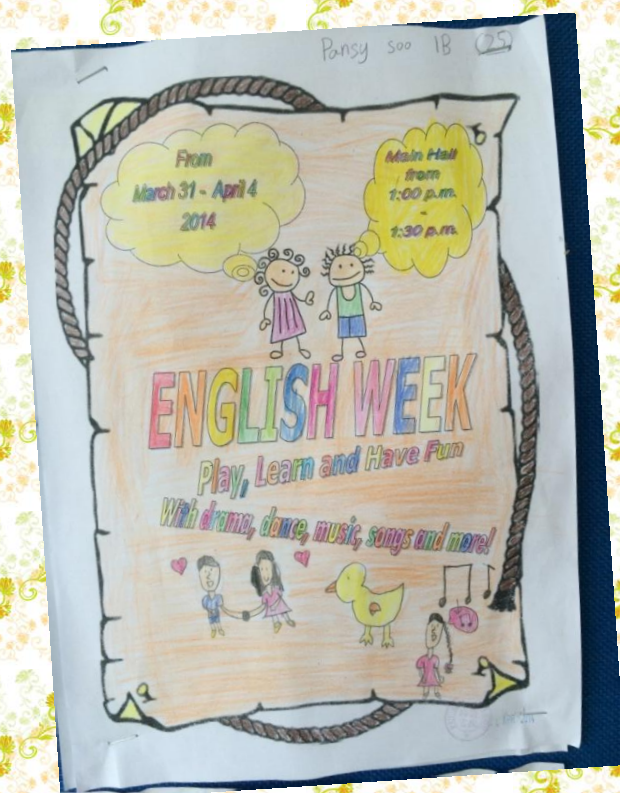 Pansy Soo 1B (25)
From
March 31 - April 4
2014
Main Hall
from
1:00 p.m.
-
1:30 p.m.
ENGLISH WEEK
Play, Learn and Have Fun
With drama, dance, music, songs and more!